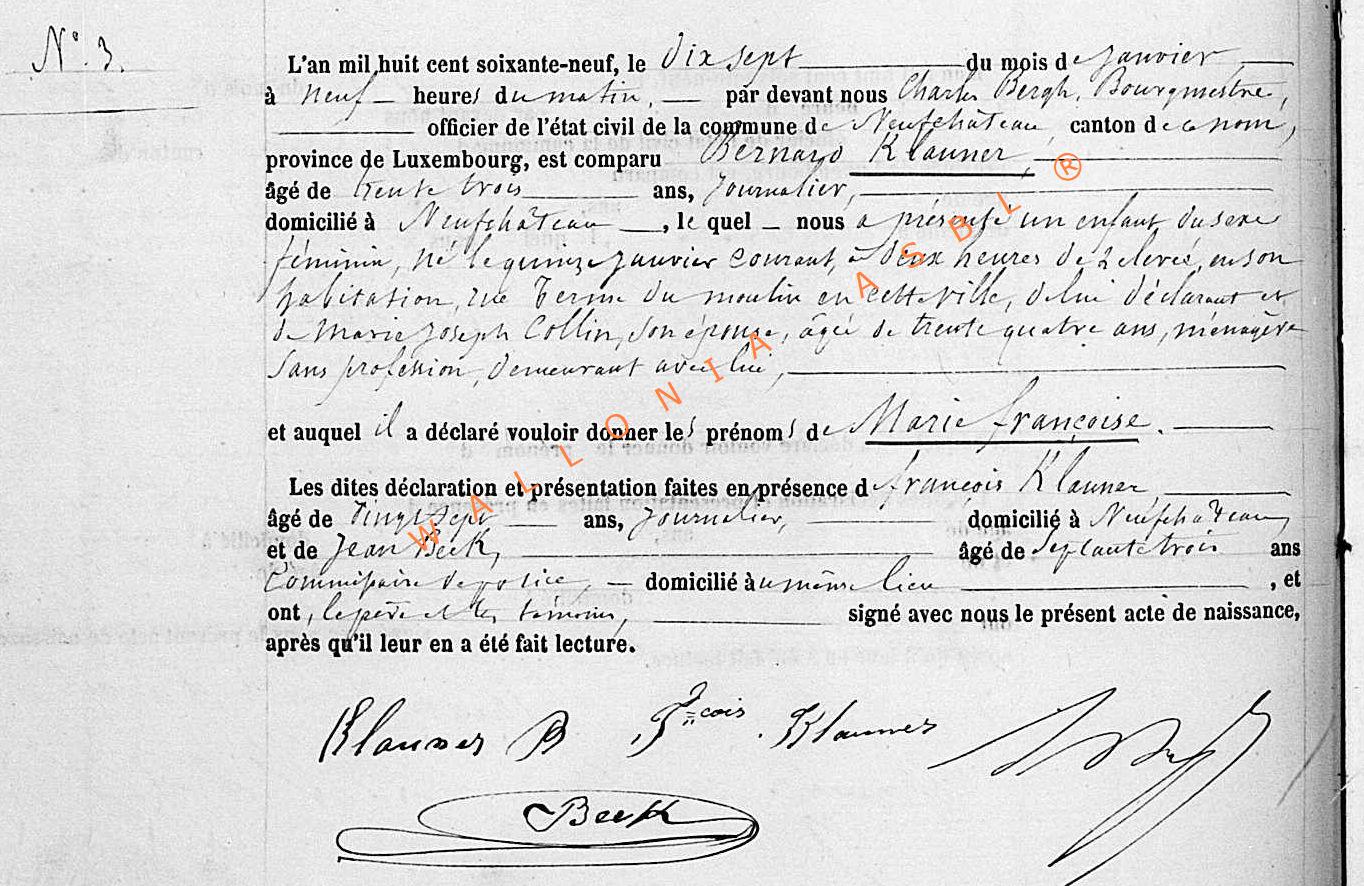 N° 3.
L'an mil huit cent soixante-neuf, le dix sept du mois de janvier
à neuf heures du matin, par devant nous Charles Bergh, Bourgmestre,
officier de l'état civil de la commune de Neufchâteau, canton de ce nom,
province de Luxembourg, est comparu Bernard Klauner,
âgé de trente trois ans, journalier,
domicilié à Neufchâteau, le quel nous a présenté un enfant du sexe
féminin, né le quinze janvier courant, à deux heures de relevée, en son
habitation, rue Terme du moulin en cette ville, de lui déclarant et
de Marie Joseph Collin, son épouse, âgée de trente quatre ans, ménagère
sans profession, demeurant avec lui,
et auquel il a déclaré vouloir donner les prénoms de Marie françoise.
Les dites déclaration et présentation faites en présence d françois Klauner,
âgé de vingt sept ans, journalier, domicilié à Neufchâteau,
et de Jean Beck, âgé de septante trois ans
Commissaire de police, domicilié au même lieu, et
ont, le père et les témoins, signé avec nous le présent acte de naissance,
après qu'il leur en a été fait lecture.
Klauner B Fçois Klauner
Beck
WALLONIA ASBL ®